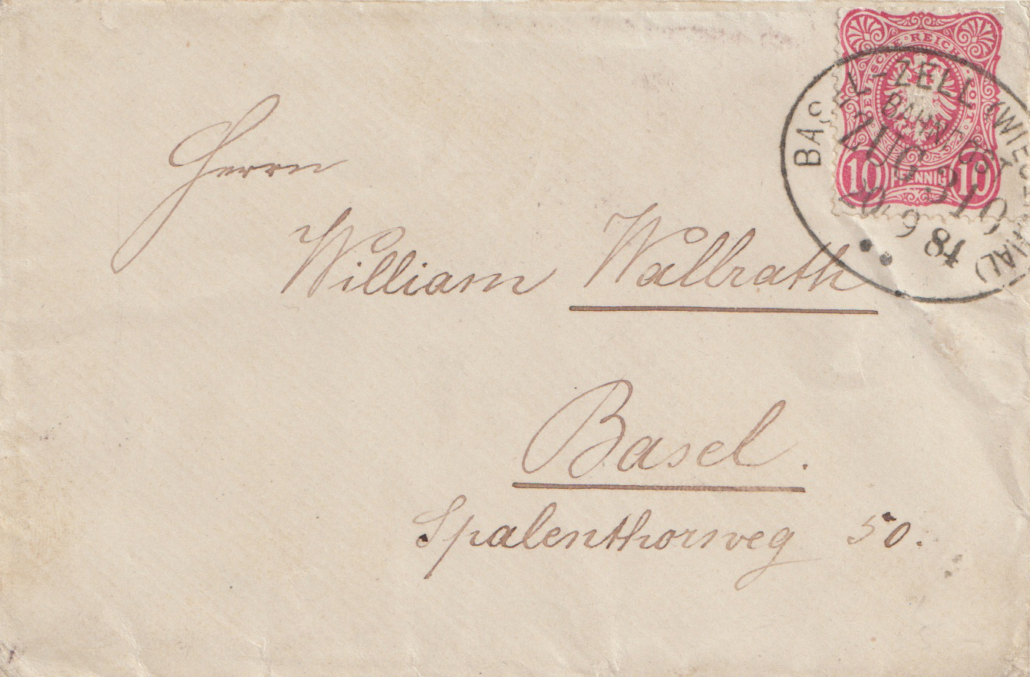 Herrn
William Wallrath
Basel.
Spalenthorweg 50.
BASEL-ZELL (WIESENTHAL)
BAHNPOST
ZUG 310
9 84
REICHS
10 PFENNIG 10